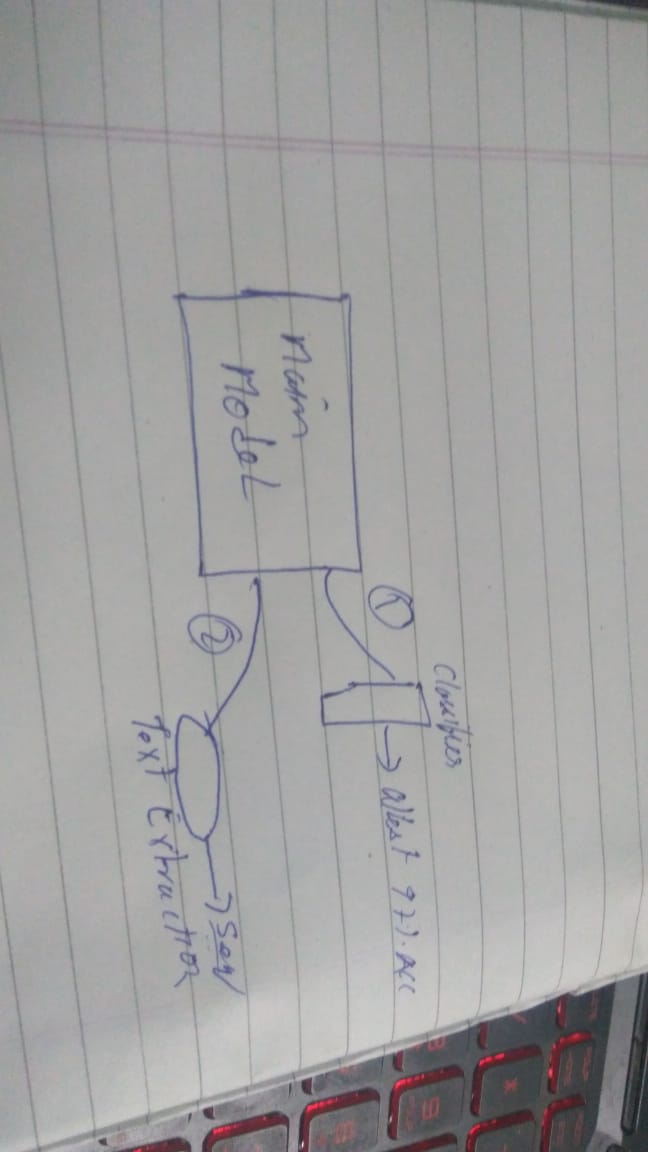 Main
Model
①
Classifier
→ atleast 97% Acc
②
Text Extraction